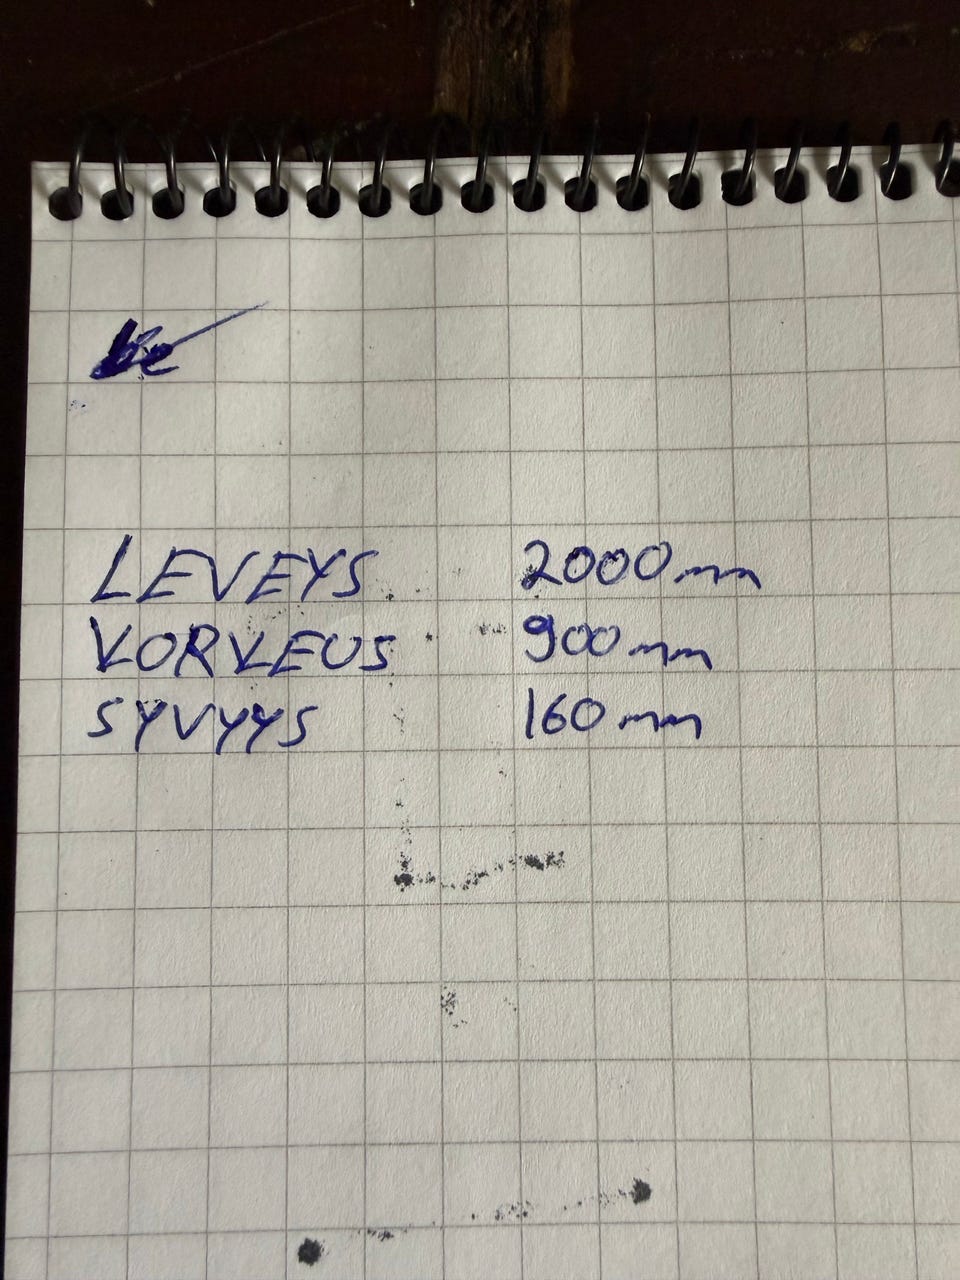 LEVEYS 2000mm
KORKEUS 900mm
SYVYYS 160mm